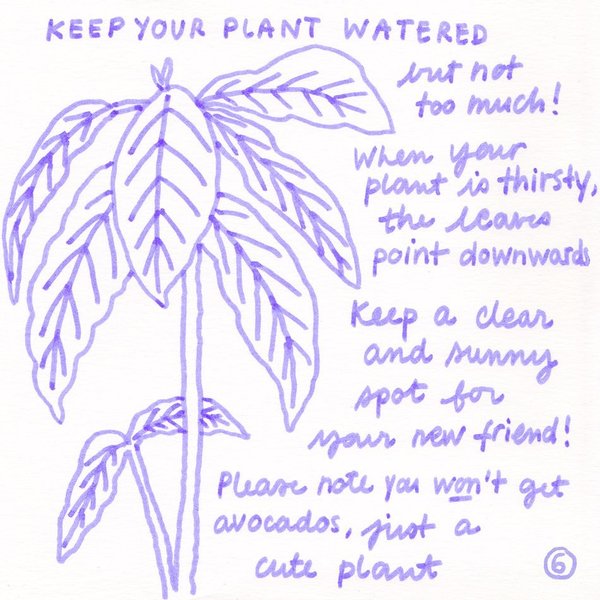 KEEP YOUR PLANT WATERED
but not
too much!
When your
plant is thirsty,
the leaves
point downwards
Keep a clear
and sunny
spot for
your new friend!
Please note you won't get
avocados, just a
cute plant
6